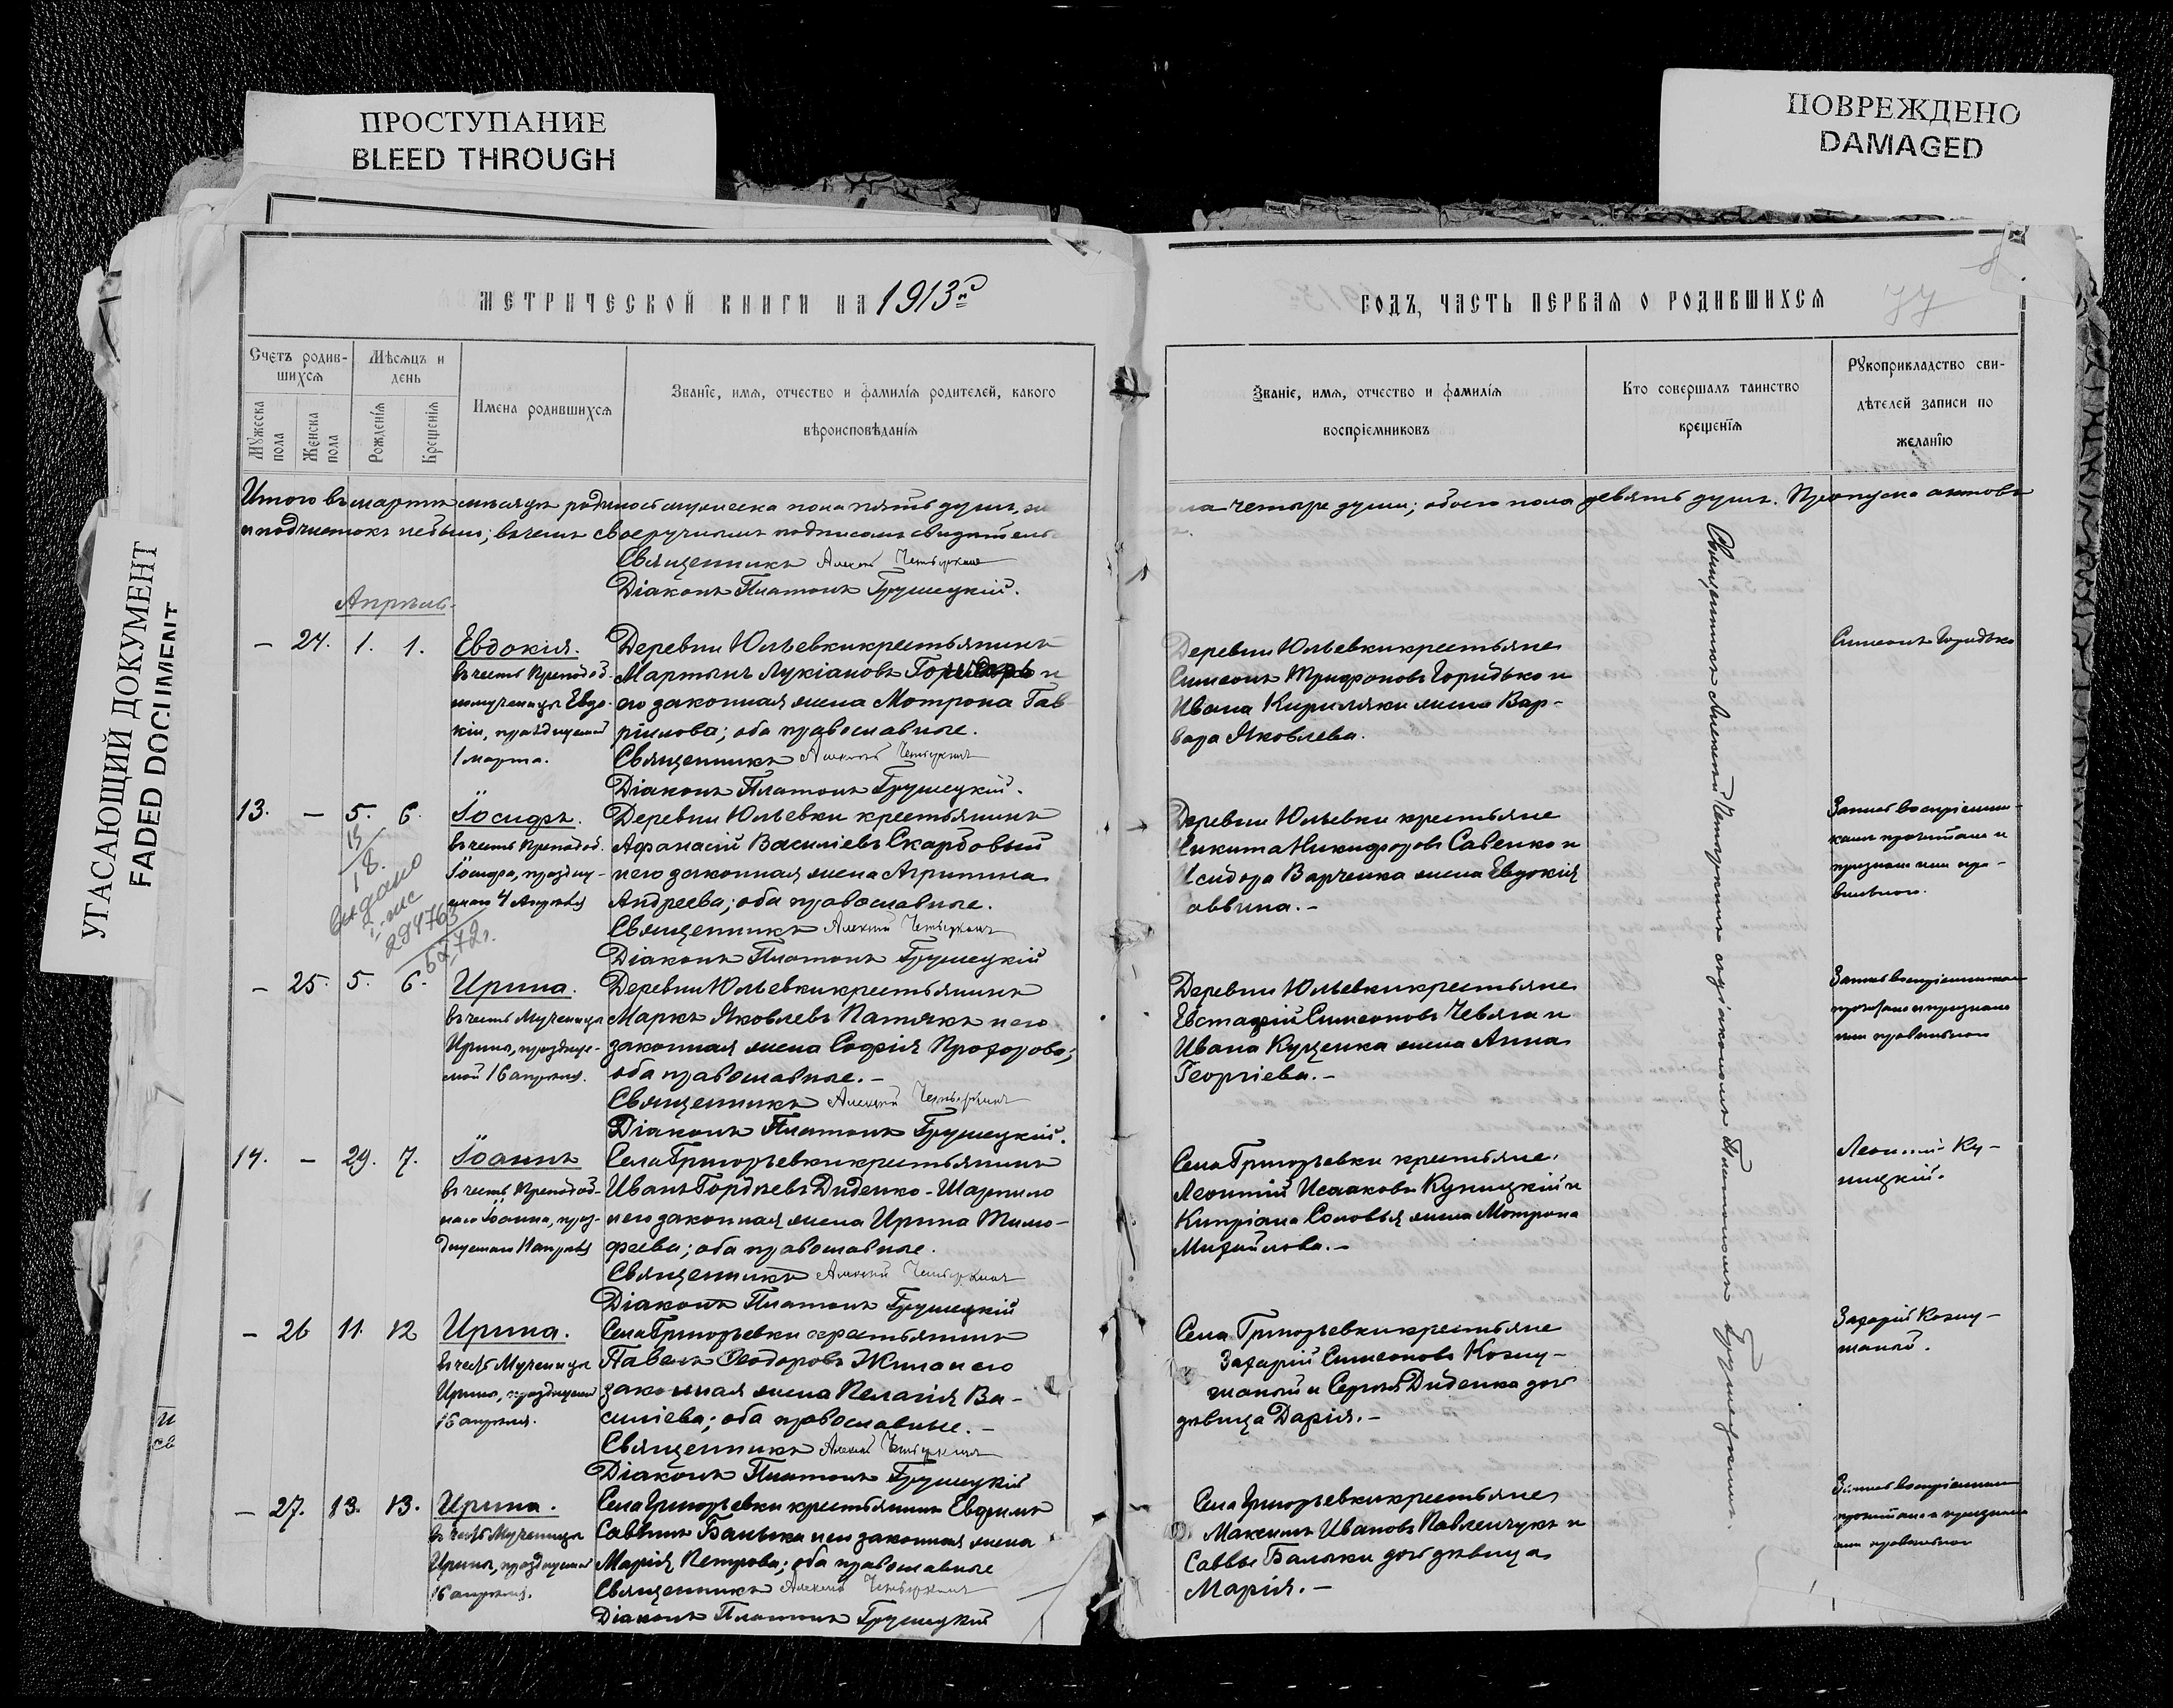 ПРОСТУПАНИЕ
BLEED THROUGH
ПОВРЕЖДЕНО
DAMAGED
УГАСАЮЩИЙ ДОКУМЕНТ
FADED DOCUMENT
МЕТРИЧЕСКОЙ КНИГИ НА 1913й
Счетъ родив-
шихся
Мѣсяцъ и
день
Мужеска
пола
Женска
пола
Рожденія
Крещенія
Имена родившихся
Званіе, имя, отчество и фамилія родителей, какого
вѣроисповѣданія
Итого въ мартѣ мѣсяцѣ родилось мужеска пола пять душъ,
и подчистокъ небыло; въ чемъ своеручнымъ подписомъ
Священникъ Алексій Четыркинъ
Діаконъ Платонъ Грушецкій.
Апрѣль.
– 24. 1. 1. Евдокія. Деревни Юльевки крестьянинъ
въ честь Преподоб- Мартынъ Лукіановъ и
номученицы Евдо- его законная жена Мотрона Гав
кіи, празднуемой ріилова; оба православные.
1 марта. Священникъ Алексій Четыркинъ
Діаконъ Платонъ Грушецкій.
13. – 5. 6. Іосифъ. Деревни Юльевки крестьянинъ
въ честь Преподоб. Афанасій Василіевъ Скарбовый
Іосифа, праздну- и его законная жена Агрипина
емаго 4 Апрѣля Андреева; оба православные.
Священникъ Алексій Четыркинъ
Діаконъ Платонъ Грушецкій
18.
выдано
294763
– 25. 5. 6. Ирина. Деревни Юльевки крестьянинъ
въ честь Мученицы Маркъ Яковлевъ Патякъ и его
Ирины, праздnуе- законная жена София Прохорова;
мой 16 апрѣля. оба православные. –
Священникъ Алексій Четыркинъ
Діаконъ Платонъ Грушецкій.
14. – 29. 7. Іоаннъ Села Григорьевки крестьянинъ
въ честь Преподоб- Иванъ Гордѣевъ Диденко-Шарпило
наго Іоанна, праз- и его законная жена Ирина Тимо-
днуемаго апрѣля феева; оба православные.
Священникъ Алексій Четыркинъ
Діаконъ Платонъ Грушецкій
– 26 11. 12 Ирина. Села Григорьевки крестьянинъ
въ честь Мученицы Павелъ Ѳеодоровъ Жила и его
Ирины, празднуемой законная жена Пелагія Ва-
16 апрѣля. силіева; оба православные. –
Священникъ Алексій Четыркинъ
Діаконъ Платонъ Грушецкій
– 27. 13. 13. Ирина. Села Григорьевки крестьянинъ Евфимъ
въ честь Мученицы Саввинъ Балыка и его законная жена
Ирины, празднуемой Марія Петрова; оба православные
16 апрѣля. Священникъ Алексій Четыркинъ
Діаконъ Платонъ Грушецкій
ГОДЪ, ЧАСТЬ ПЕРВАЯ О РОДИВШИХСЯ
77
Званіе, имя, отчество и фамилія
воспріемниковъ
Кто совершалъ таинство
крещенія
Рукоприкладство сви-
дѣтелей записи по
желанію
четыре души; обоего пола девять душъ. Пропуска актовъ
Деревни Юльевки крестьяне
Симеонъ Трифоновъ Горидько и
Ивана Кириляки жена Вар-
вара Яковлева.
Симеонъ Горидько
Деревни Юльевки крестьяне
Никита Никифоровъ Савенко и
Исидора Варченка жена Евдокія
аввина. –
Запись воспріемни-
камъ прочитана и
признана ими пра-
вильною.
Деревни Юльевки крестьяне
Евстафій Симеоновъ Чевяга и
Ивана Куценка жена Анна
Георгіева. –
Запись воспріемникамъ
прочитана и признана
ими правильною
Села Григорьевки крестьяне
Леонтій Исааковъ Куницкій и
Кипріана Соловья жена Мотрона
Михайлова. –
Леонтій Ку-
ницкій.
Села Григорьевки крестьяне
Захарій Симеоновъ
и Сергія Диденка дочь
дѣвица Дарія. –
Села Григорьевки крестьяне
Максимъ Ивановъ Павленчукъ и
Саввы Балыки дочь дѣвица
Марія. –
Запись воспріемникамъ
прочитана и признана
ими правильною
Священникъ Алексій Четыркинъ съ діакономъ Платономъ Грушецкимъ.